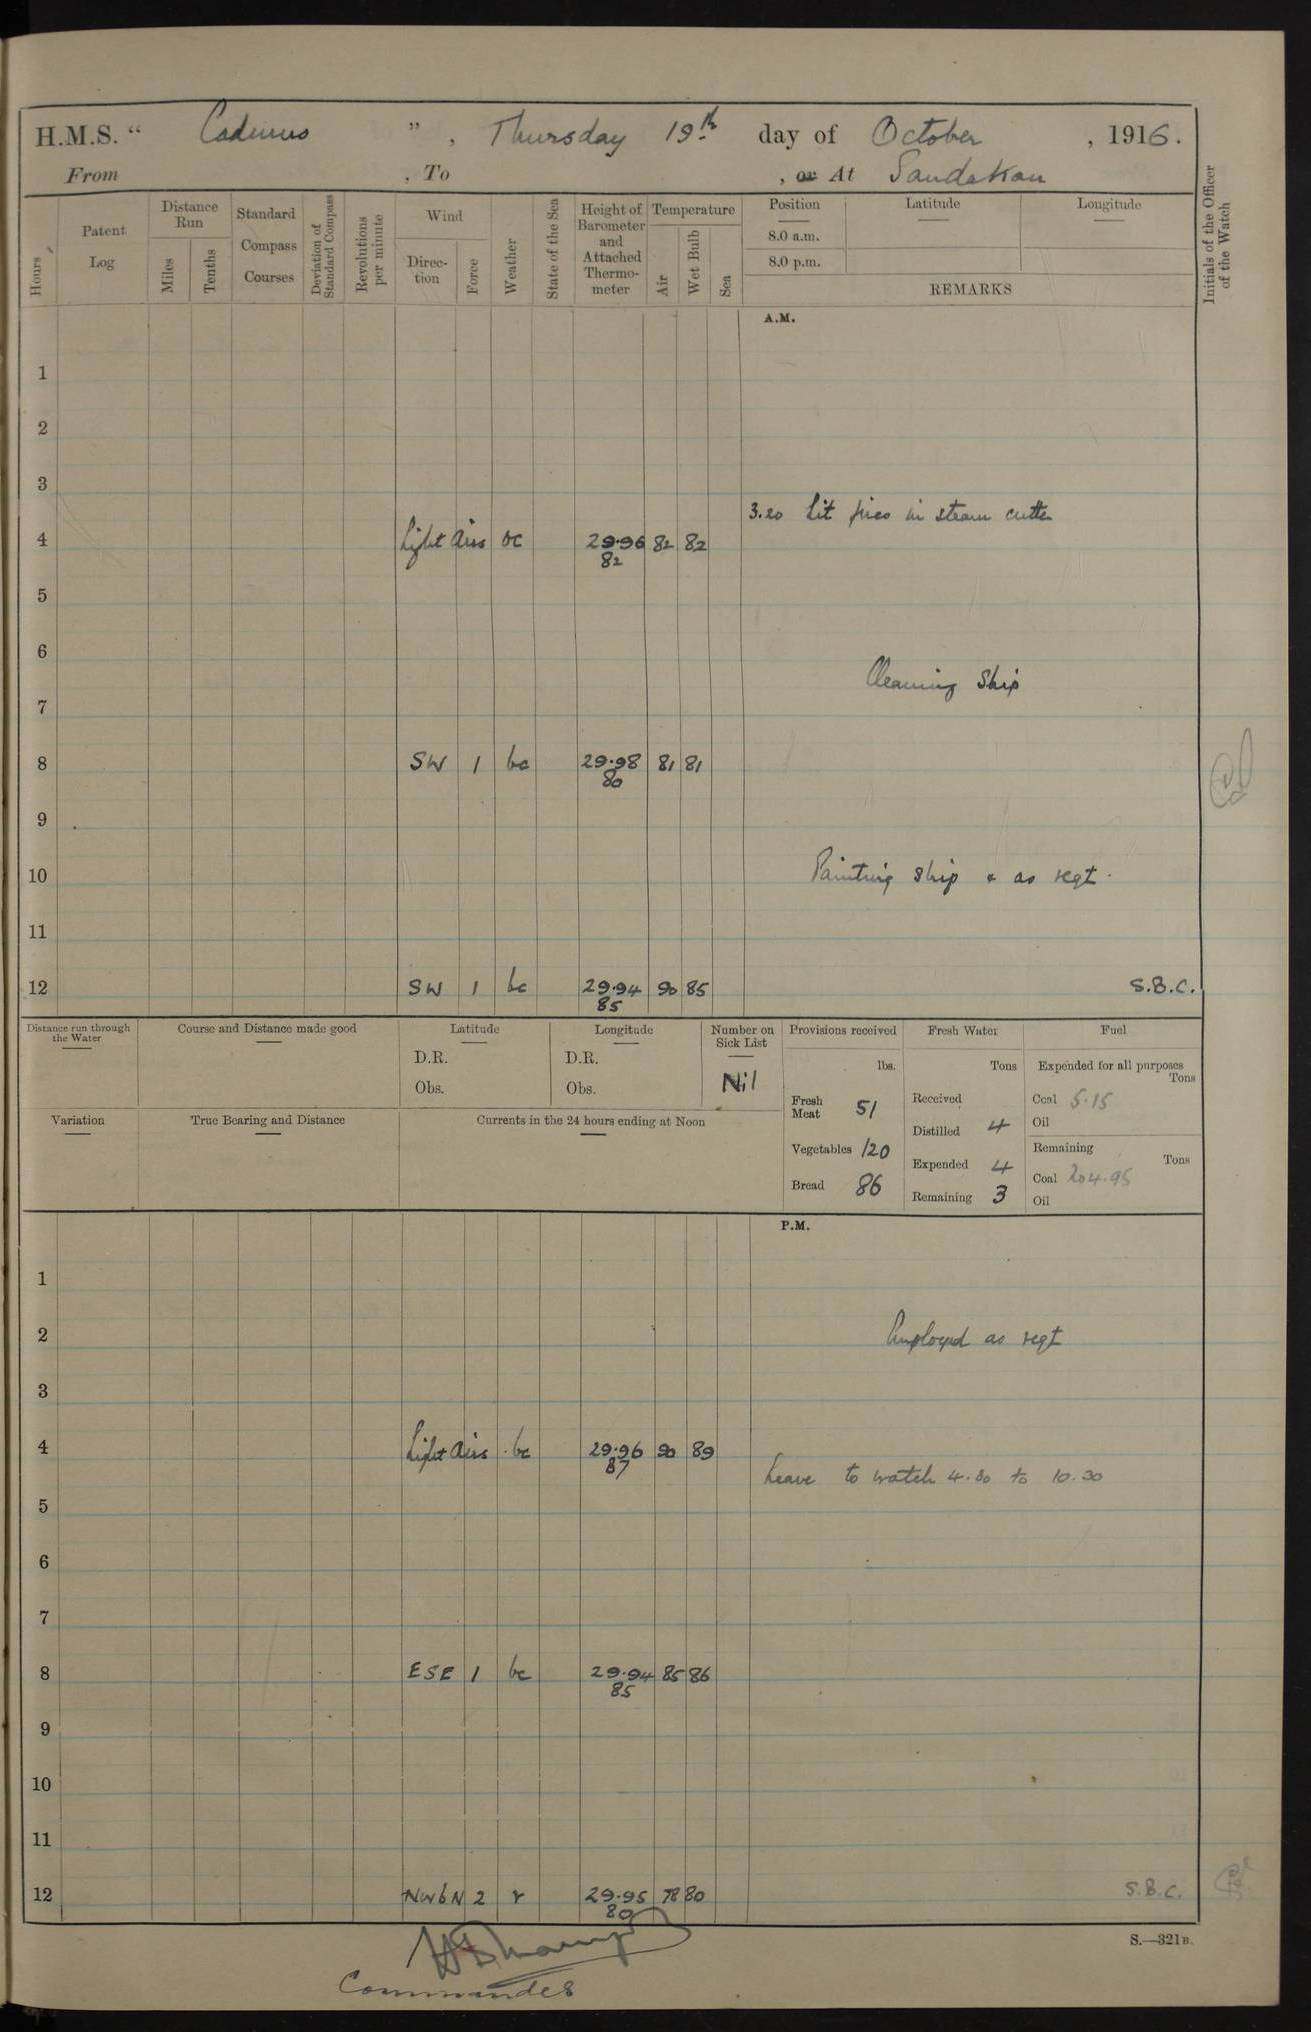 H.M.S. “ Cadmus ” , Thursday 19th day of October , 1916.
From , To , or At Sandakan
Hours
Patent Log
Distance Run
Miles
Tenths
Standard Compass Courses
Deviation of Standard Compass
Revolutions per minute
Wind
Direc-tion
Force
Weather
State of the Sea
Height of Barometer and Attached Thermo-meter
Temperature
Air
Wet Bulb
Sea
Position Latitude Longitude
8.0 a.m.
8.0 p.m.
REMARKS
Initials of the Officer of the Watch
A.M.
1
2
3
3.20 Lit fires in steam cutter
4 Light Airs bc 29.96 82 82
82
5
6
Cleaning Ship
7
8 SW 1 bc 29.98 81 81
80
9
10 Painting ship & as reqt.
11
12 SW 1 bc 29.94 90 85 S.B.C.
85
Distance run through the Water
Course and Distance made good
Latitude
D.R.
Obs.
Longitude
D.R.
Obs.
Number on Sick List
Nil
Provisions received
lbs.
Fresh Meat 51
Vegetables 120
Bread 86
Fresh Water
Tons
Received
Distilled 4
Expended 4
Remaining 3
Fuel
Expended for all purposes
Tons
Coal 5.15
Oil
Remaining
Tons
Coal 204.95
Oil
Variation
True Bearing and Distance
Currents in the 24 hours ending at Noon
P.M.
1
2 Employed as reqt
3
4 Light Airs bc 29.96 90 89
87
Leave to watch 4.30 to 10.30
5
6
7
8 ESE 1 bc 29.94 85 86
85
9
10
11
12 NWbN 2 r 29.95 78 80 S.B.C.
80
Commander
S.—321B.